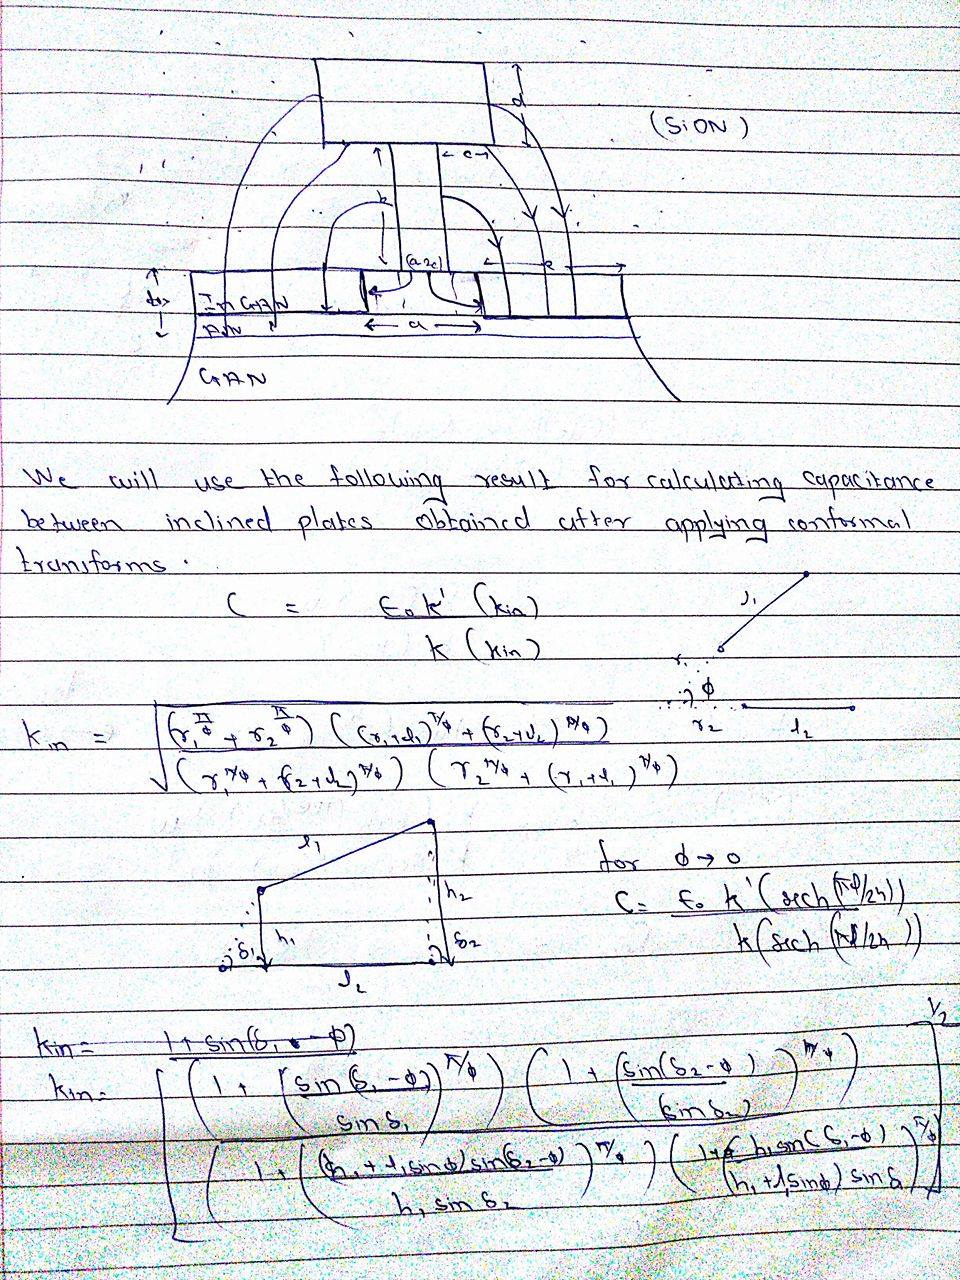 d
(SiON)
← c →
h
(a-2c)
e
InGAN
AlN
← a →
GAN
We will use the following result for calculating capacitance
between inclined plates obtained after applying conformal
transforms.
C = ε₀ k' (kin) / k (kin)
l₁
r₁
ϕ
r₂ l₂
kin = √( (r₁^π/ϕ + r₂^π/ϕ) ((r₁+l₁)^π/ϕ + (r₂+l₂)^π/ϕ) / (r₁^π/ϕ + (r₂+l₂)^π/ϕ) (r₂^π/ϕ + (r₁+l₁)^π/ϕ) )
l₁
for ϕ → 0
h₂
C = ε₀ k' (sech (πl/2h)) / k (sech (πl/2h))
δ₁ h₁ δ₂
l₂
kin = 1 + sin(δ₁ - ϕ)
kin = [ (1 + (sin(δ₁-ϕ) / sin δ₁)^π/ϕ) (1 + (sin(δ₂-ϕ) / sin δ₂)^π/ϕ) / (1 + ((h₁+l₁sinϕ) sin(δ₂-ϕ) / h₁ sin δ₂)^π/ϕ) (1 + (h₁ sin(δ₁-ϕ) / (h₁+l₁sinϕ) sin δ₁)^π/ϕ) ]^1/2